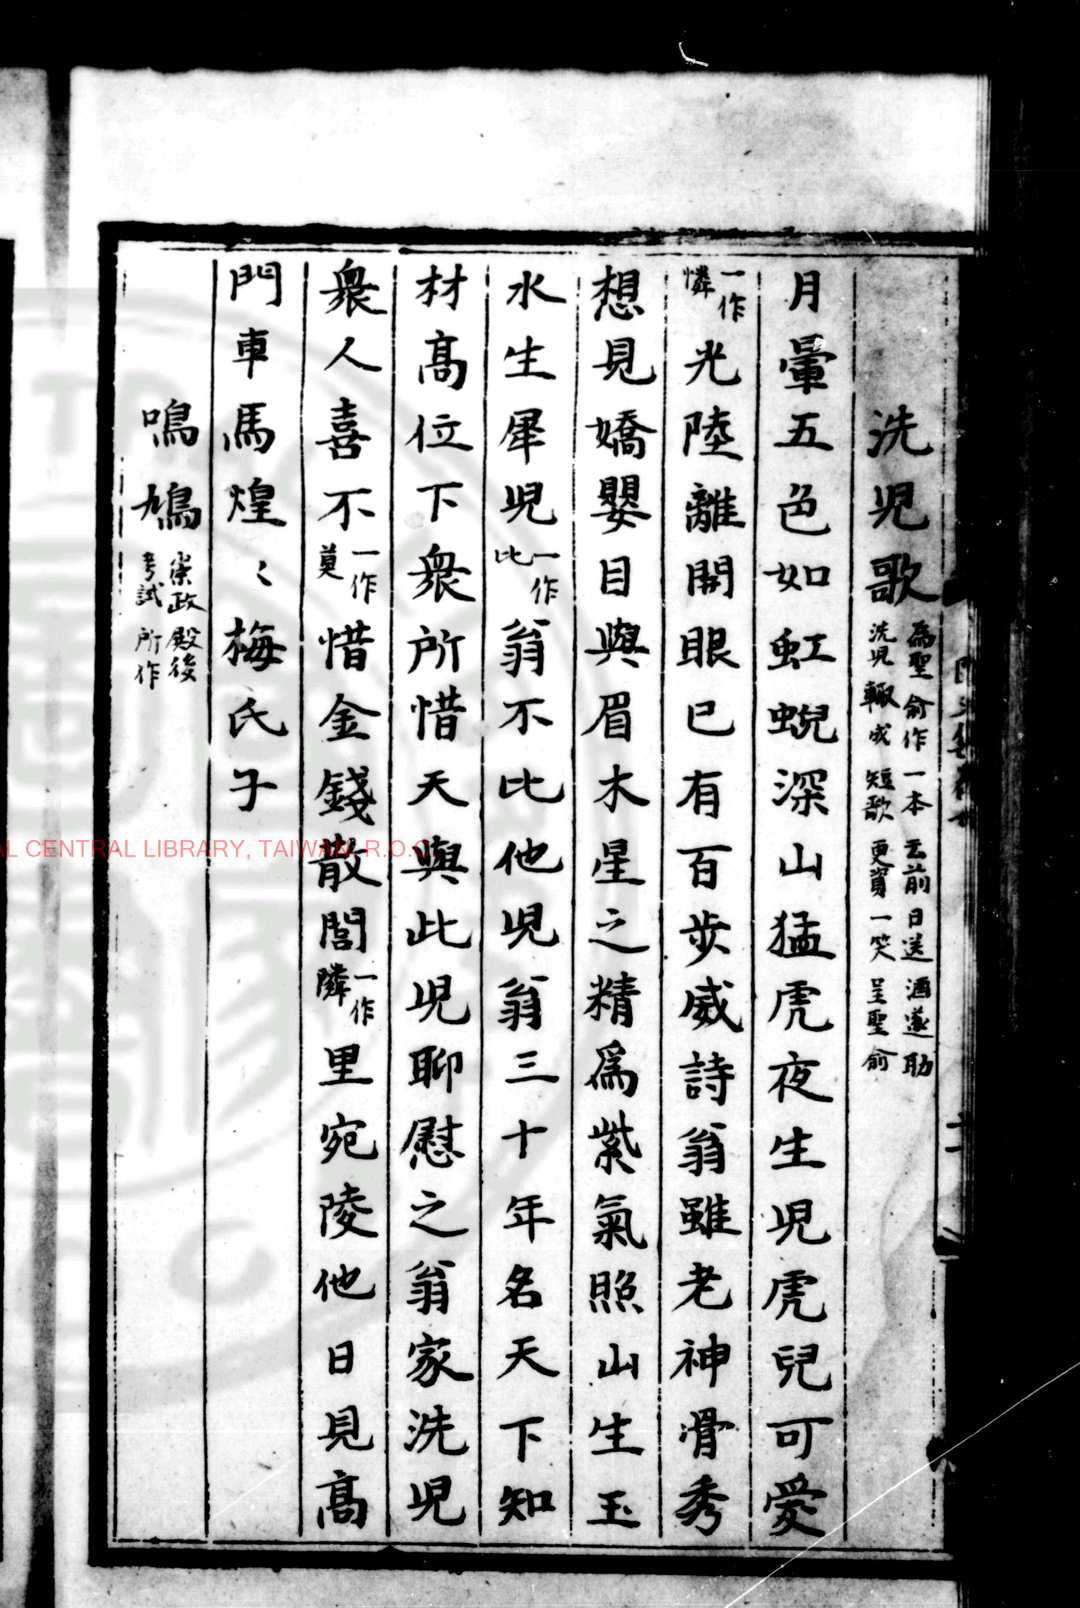 洗兒歌 為聖俞作一本云前日送酒遂助洗兒輙成短歌更資一笑呈聖俞
月暈五色如虹蜺深山猛虎夜生兒虎兒可愛
一作憐光陸離開眼已有百步威詩翁雖老神骨秀
想見嬌嬰目與眉木星之精為紫氣照山生玉
水生犀兒一作比翁不比他兒翁三十年名天下知
材高位下衆所惜天與此兒聊慰之翁家洗兒
衆人喜不一作莫惜金錢散閭一作隣里宛陵他日見高
門車馬煌〻梅氏子
鳴鳩 崇政殿後考試所作
AL CENTRAL LIBRARY, TAIWAN, R.O.C.